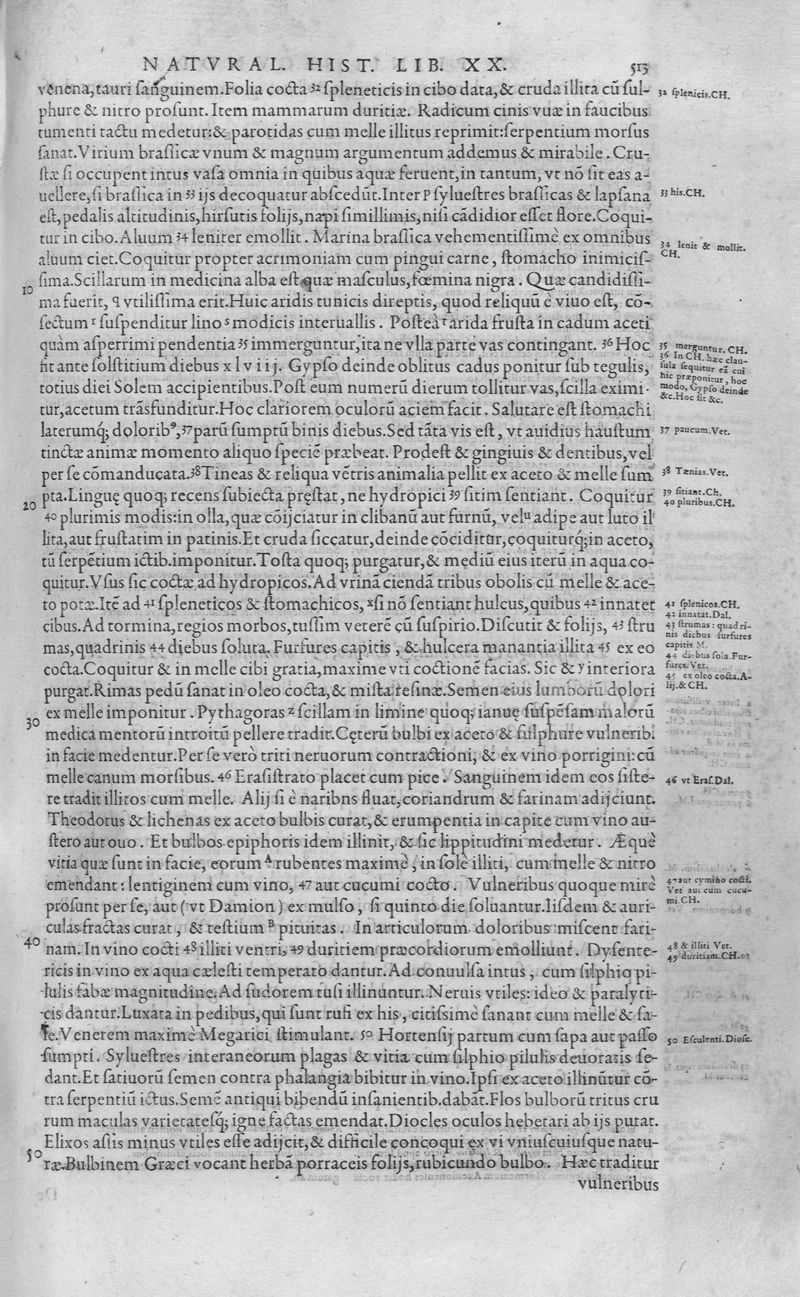 NATVRAL. HIST. LIB. XX. 513
venena,tauri ſanguinem.Folia cocta 32 ſpleneticis in cibo data,& cruda illita cū ſul-
phure & nitro proſunt. Item mammarum duritiæ. Radicum cinis vuæ in faucibus
tumenti tactu medetur:& parotidas cum melle illitus reprimit:ſerpentium morſus
ſanat.Virium braſſicæ vnum & magnum argumentum addemus & mirabile. Cru-
ſtæ ſi occupent intus vaſa omnia in quibus aquæ feruent,in tantum, vt nō ſit eas a-
uellere,ſi braſſica in 33 ijs decoquatur abſcedūt.Inter P ſylueſtres braſſicas & lapſana
eſt,pedalis altitudinis,hirſutis folijs,napi ſimillimis,niſi cādidior eſſet flore.Coqui-
tur in cibo.Aluum 34 leniter emollit. Marina braſſica vehementiſſimè ex omnibus
aluum ciet.Coquitur propter acrimoniam cum pingui carne, ſtomacho inimiciſ-
10 ſima.Scillarum in medicina alba eſt quæ maſculus,fœmina nigra. Quæ candidiſſi-
ma fuerit, q vtiliſſima erit.Huic aridis tunicis direptis, quod reliquū è viuo eſt, cō-
ſectum r ſuſpenditur lino s modicis interuallis. Poſteà t arida fruſta in cadum aceti
quàm aſperrimi pendentia 35 immerguntur,ita ne vlla parte vas contingant. 36 Hoc
fit ante ſolſtitium diebus x l v i i j. Gypſo deinde oblitus cadus ponitur ſub tegulis,
totius diei Solem accipientibus.Poſt eum numerū dierum tollitur vas,ſcilla eximi-
tur,acetum trāsfunditur.Hoc clariorem oculorū aciem facit. Salutare eſt ſtomachi
laterumq́; dolorib⁹,37 parū ſumptū binis diebus.Sed tāta vis eſt, vt auidius hauſtum
tinctæ animæ momento aliquo ſpeciē præbeat. Prodeſt & gingiuis & dentibus,vel
per ſe cōmanducata.38 Tineas & reliqua vētris animalia pellit ex aceto & melle ſum
20 pta.Linguę quoq; recens ſubiecta pręſtat, ne hydropici 39 ſitim ſentiant. Coquitur
40 plurimis modis:in olla,quæ cōijciatur in clibanū aut furnū, vel u adipe aut luto il
lita,aut fruſtatim in patinis.Et cruda ſiccatur,deinde cōciditur,coquiturq́;in aceto,
tū ſerpētium ictib.imponitur.Toſta quoq; purgatur,& mediū eius iterū in aqua co-
quitur.Vſus ſic coctæ ad hydropicos.Ad vrinā ciendā tribus obolis cū melle & ace-
to potæ.Itē ad 41 ſpleneticos & ſtomachicos, x ſi nō ſentiant hulcus,quibus 42 innatet
cibus.Ad tormina,regios morbos,tuſſim veterē cū ſuſpirio.Diſcutit & folijs, 43 ſtru
mas,quadrinis 44 diebus ſoluta. Furfures capitis, & hulcera manantia illita 45 ex eo
cocta.Coquitur & in melle cibi gratia,maxime vti coctionē facias. Sic & y interiora
purgat.Rimas pedū ſanat in oleo cocta,& miſta reſinæ.Semen eius lumborū dolori
30 ex melle imponitur. Pythagoras z ſcillam in limine quoq; ianuę ſuſpēſam malorū
medicamentorū introitū pellere tradit.Cęterū bulbi ex aceto & ſulphure vulnerib.
in facie medentur.Per ſe verò triti neruorum contractioni, & ex vino porrigini:cū
melle canum morſibus. 46 Eraſiſtrato placet cum pice. Sanguinem idem eos ſiſte-
re tradit illitos cum melle. Alij ſi è naribns fluat,coriandrum & farinam adijciunt.
Theodorus & lichenas ex aceto bulbis curat,& erumpentia in capite cum vino au-
ſtero aut ouo. Et bulbos epiphoris idem illinit, & ſic lippitudini medetur. Æquè
vitia quæ ſunt in facie, eorum A rubentes maximè, in ſole illiti, cum melle & nitro
emendant: lentiginem cum vino, 47 aut cucumi cocto. Vulneribus quoque mirè
proſunt per ſe, aut (vt Damion) ex mulſo, ſi quinto die ſoluantur.Iiſdem & auri-
culas fractas curat, & teſtium B pituitas. In articulorum doloribus miſcent fari-
40 nam. In vino cocti 48 illiti ventri, 49 duritiem præcordiorum emolliunt. Dyſente-
ricis in vino ex aqua cæleſti temperato dantur.Ad conuulſa intus, cum ſilphio pi-
lulis fabæ magnitudine.Ad ſudorem tuſi illinuntur. Neruis vtiles: ideo & paralyti-
cis dantur.Luxata in pedibus,qui ſunt rufi ex his, citiſsimè ſanant cum melle & ſa-
le.Venerem maximè Megarici ſtimulant. 50 Hortenſij partum cum ſapa aut paſſo
ſumpti. Sylueſtres interaneorum plagas & vitia cum ſilphio pilulis deuoratis ſe-
dant.Et ſatiuorū ſemen contra phalangia bibitur in vino.Ipſi ex aceto illinūtur cō-
tra ſerpentiū ictus.Semē antiqui bibendū inſanientib.dabāt.Flos bulborū tritus cru
rum maculas varietateſq́; igne factas emendat.Diocles oculos hebetari ab ijs putat.
Elixos aſſis minus vtiles eſſe adijcit,& difficile concoqui ex vi vniuſcuiuſque natu-
50 ræ.Bulbinem Græci vocant herbā porraceis folijs,rubicundo bulbo. Hæc traditur
vulneribus
32 ſplenicis.CH.
33 his.CH.
34 lenit & mollit.
CH.
35 merguntur. CH.
36 In CH. hæc clau-
ſula ſequitur eā cui
hic præponitur, hoc
modo, Gypſo deinde
&c.Hoc fit &c.
37 paucum.Vet.
38 Tænias.Vet.
39 ſitiant.Ch.
40 pluribus.CH.
41 ſplenicos.CH.
42 innatat.Dal.
43 ſtrumas: quadri-
nis diebus furfures
capitis M.
44 diebus ſola.Fur-
fures.Vet.
45 ex oleo cocta.A-
lij.& CH.
46 vt Eraſ.Dal.
47 aut cymino cocti.
Vet aut cum cucu-
mi CH.
48 & illiti Vet.
49 duritiam.CH.
50 Eſculenti.Dioſc.